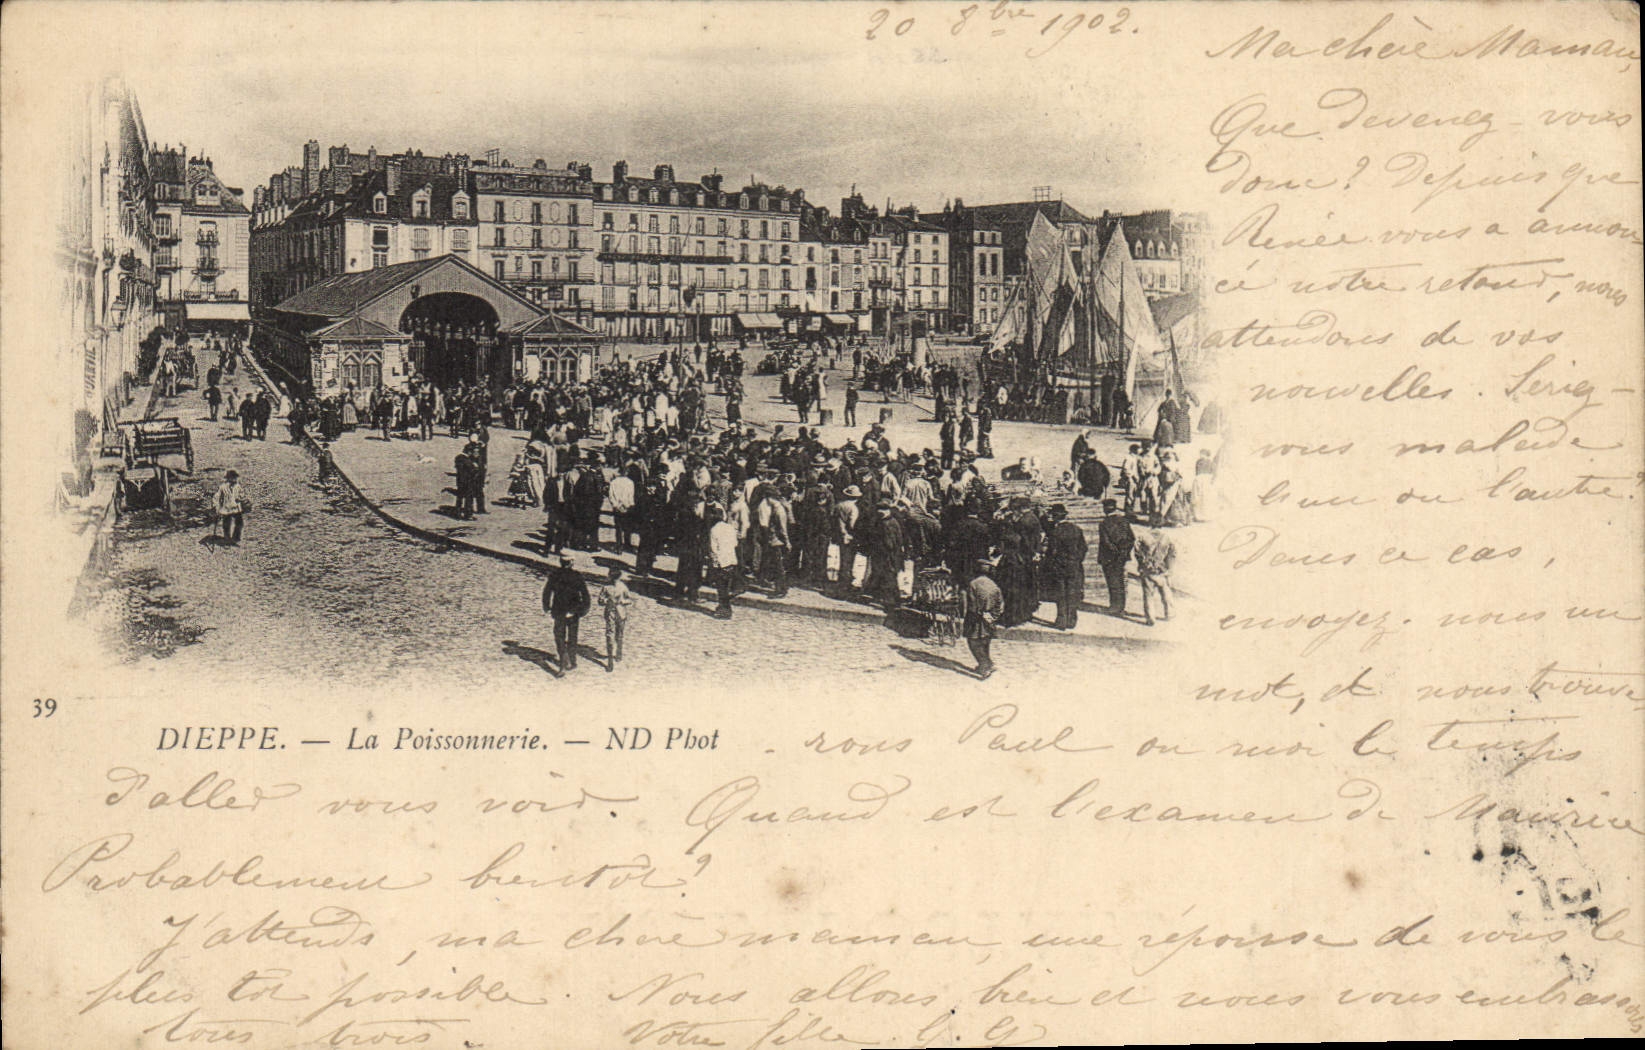 20 8bre 1902.
Ma chère Maman,
Que devenez-vous
donc? Depuis que
Renée vous a annon-
cé notre retour, nous
attendons de vos
nouvelles. Seriez-
vous malade
l'un ou l'autre?
Dans ce cas,
envoyez-nous un
mot, et nous trouve-
39
DIEPPE. — La Poissonnerie. — ND Phot
-rons Paul ou moi le temps
d'aller vous voir. Quand est l'examen de Maurice
Probablement bientôt?
J'attends, ma chère maman, une réponse de vous le
plus tôt possible. Nous allons bien et nous vous embrassons
tous trois. Votre fille. G. G